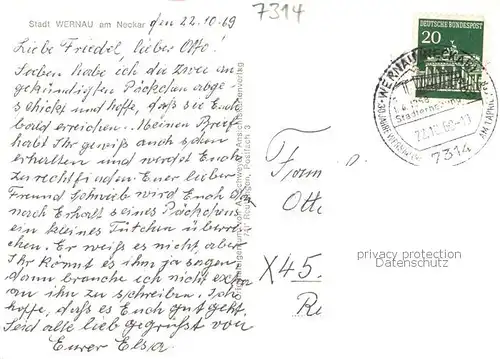 7314
Stadt WERNAU am Neckar den 22.10.69
Liebe Friedel, lieber Otto!
Soeben habe ich die zwei an
gekündigten Päckchen abge-
schickt und hoffe, daß sie Euch
bald erreichen. Meinen Brief
habt Ihr gewiß auch schon
erhalten und werdet Euch
zurechtfinden. Euer lieber
Freund Schwieb wird Euch
nach Erhalt seines Päckchens
ein kleines Tütchen überrei-
chen. Er weiß es nicht aber
Ihr könnt es ihm ja sagen,
dann brauche ich nicht extra
an ihn zu schreiben. Ich
hoffe, daß es Euch gut geht.
Seid alle lieb gegrüßt von
Eurer Elsa
Ansichtskartenverlag
741 Reutlingen, Postfach 3
DEUTSCHE BUNDESPOST
20
WERNAU (NECKAR)
1.4.1968
Stadterhebung
22.10.69-17
7314
Otto
X45
privacy protection
Datenschutz